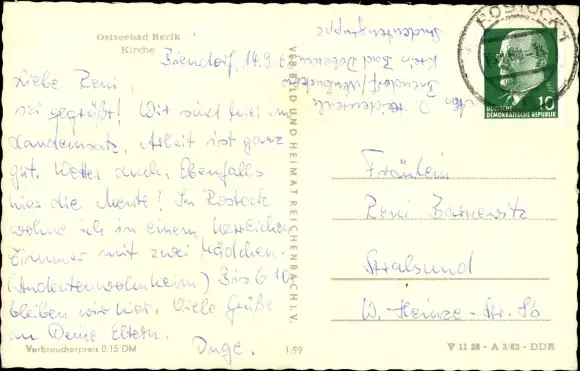 Ostseebad Rerik
Kirche
Biendorf, 14.9.
Liebe Reni,
sei gegrüßt! Wir sind hier im
Landeinsatz, Arbeit ist ganz
gut. Wetter auch, Ebenfalls
hier die Leute! In Rostock
wohne ich in einem herrlichen
Zimmer mit zwei Mädchen.
(Studentenwohnheim) Bis 6.10.
bleiben wir hier. Viele Grüße
an Deine Eltern.
Inge.
Verbraucherpreis 0.15 DM
1/99
VEB BILD UND HEIMAT REICHENBACH I. V.
Biendorf
Kreis Bad Doberan
Studentengruppe
ROSTOCK 1
DEUTSCHE
DEMOKRATISCHE REPUBLIK
10
Fräulein
Reni Barnewitz
Stralsund
W. Heinze-Str. 8b
V 11 28 - A 3/62 - DDR